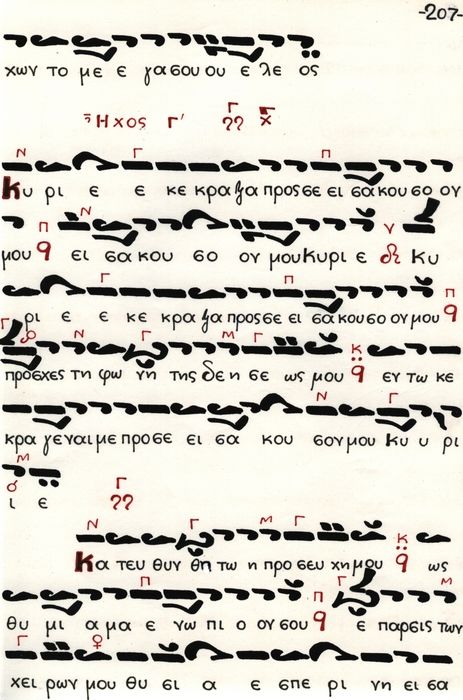 -207-
χων το με ε γα σου ου ε λε ος
Ἦχος Γ' Γ
Κυ ρι ε ε κε κρα ξα προς σε ει σα κου σο ου
μου ει σα κου σο ου μου Κυρι ε Κυ
ρι ε ε κε κρα ξα προς σε ει σα κου σο ου μου
προσχες τη φω νη της δε η σε ως μου εν τω κε
κρα γεναι με προ σε ει σα κου σον μου Κυ υ ρι
ι ε
Κα τευ θυν θη τω η προ σευ χη μου ως
θυ μι α μα ε νω πι ο ον σου ε παρσις των
χει ρων μου θυ σι α ε σπε ρι νη ει σα